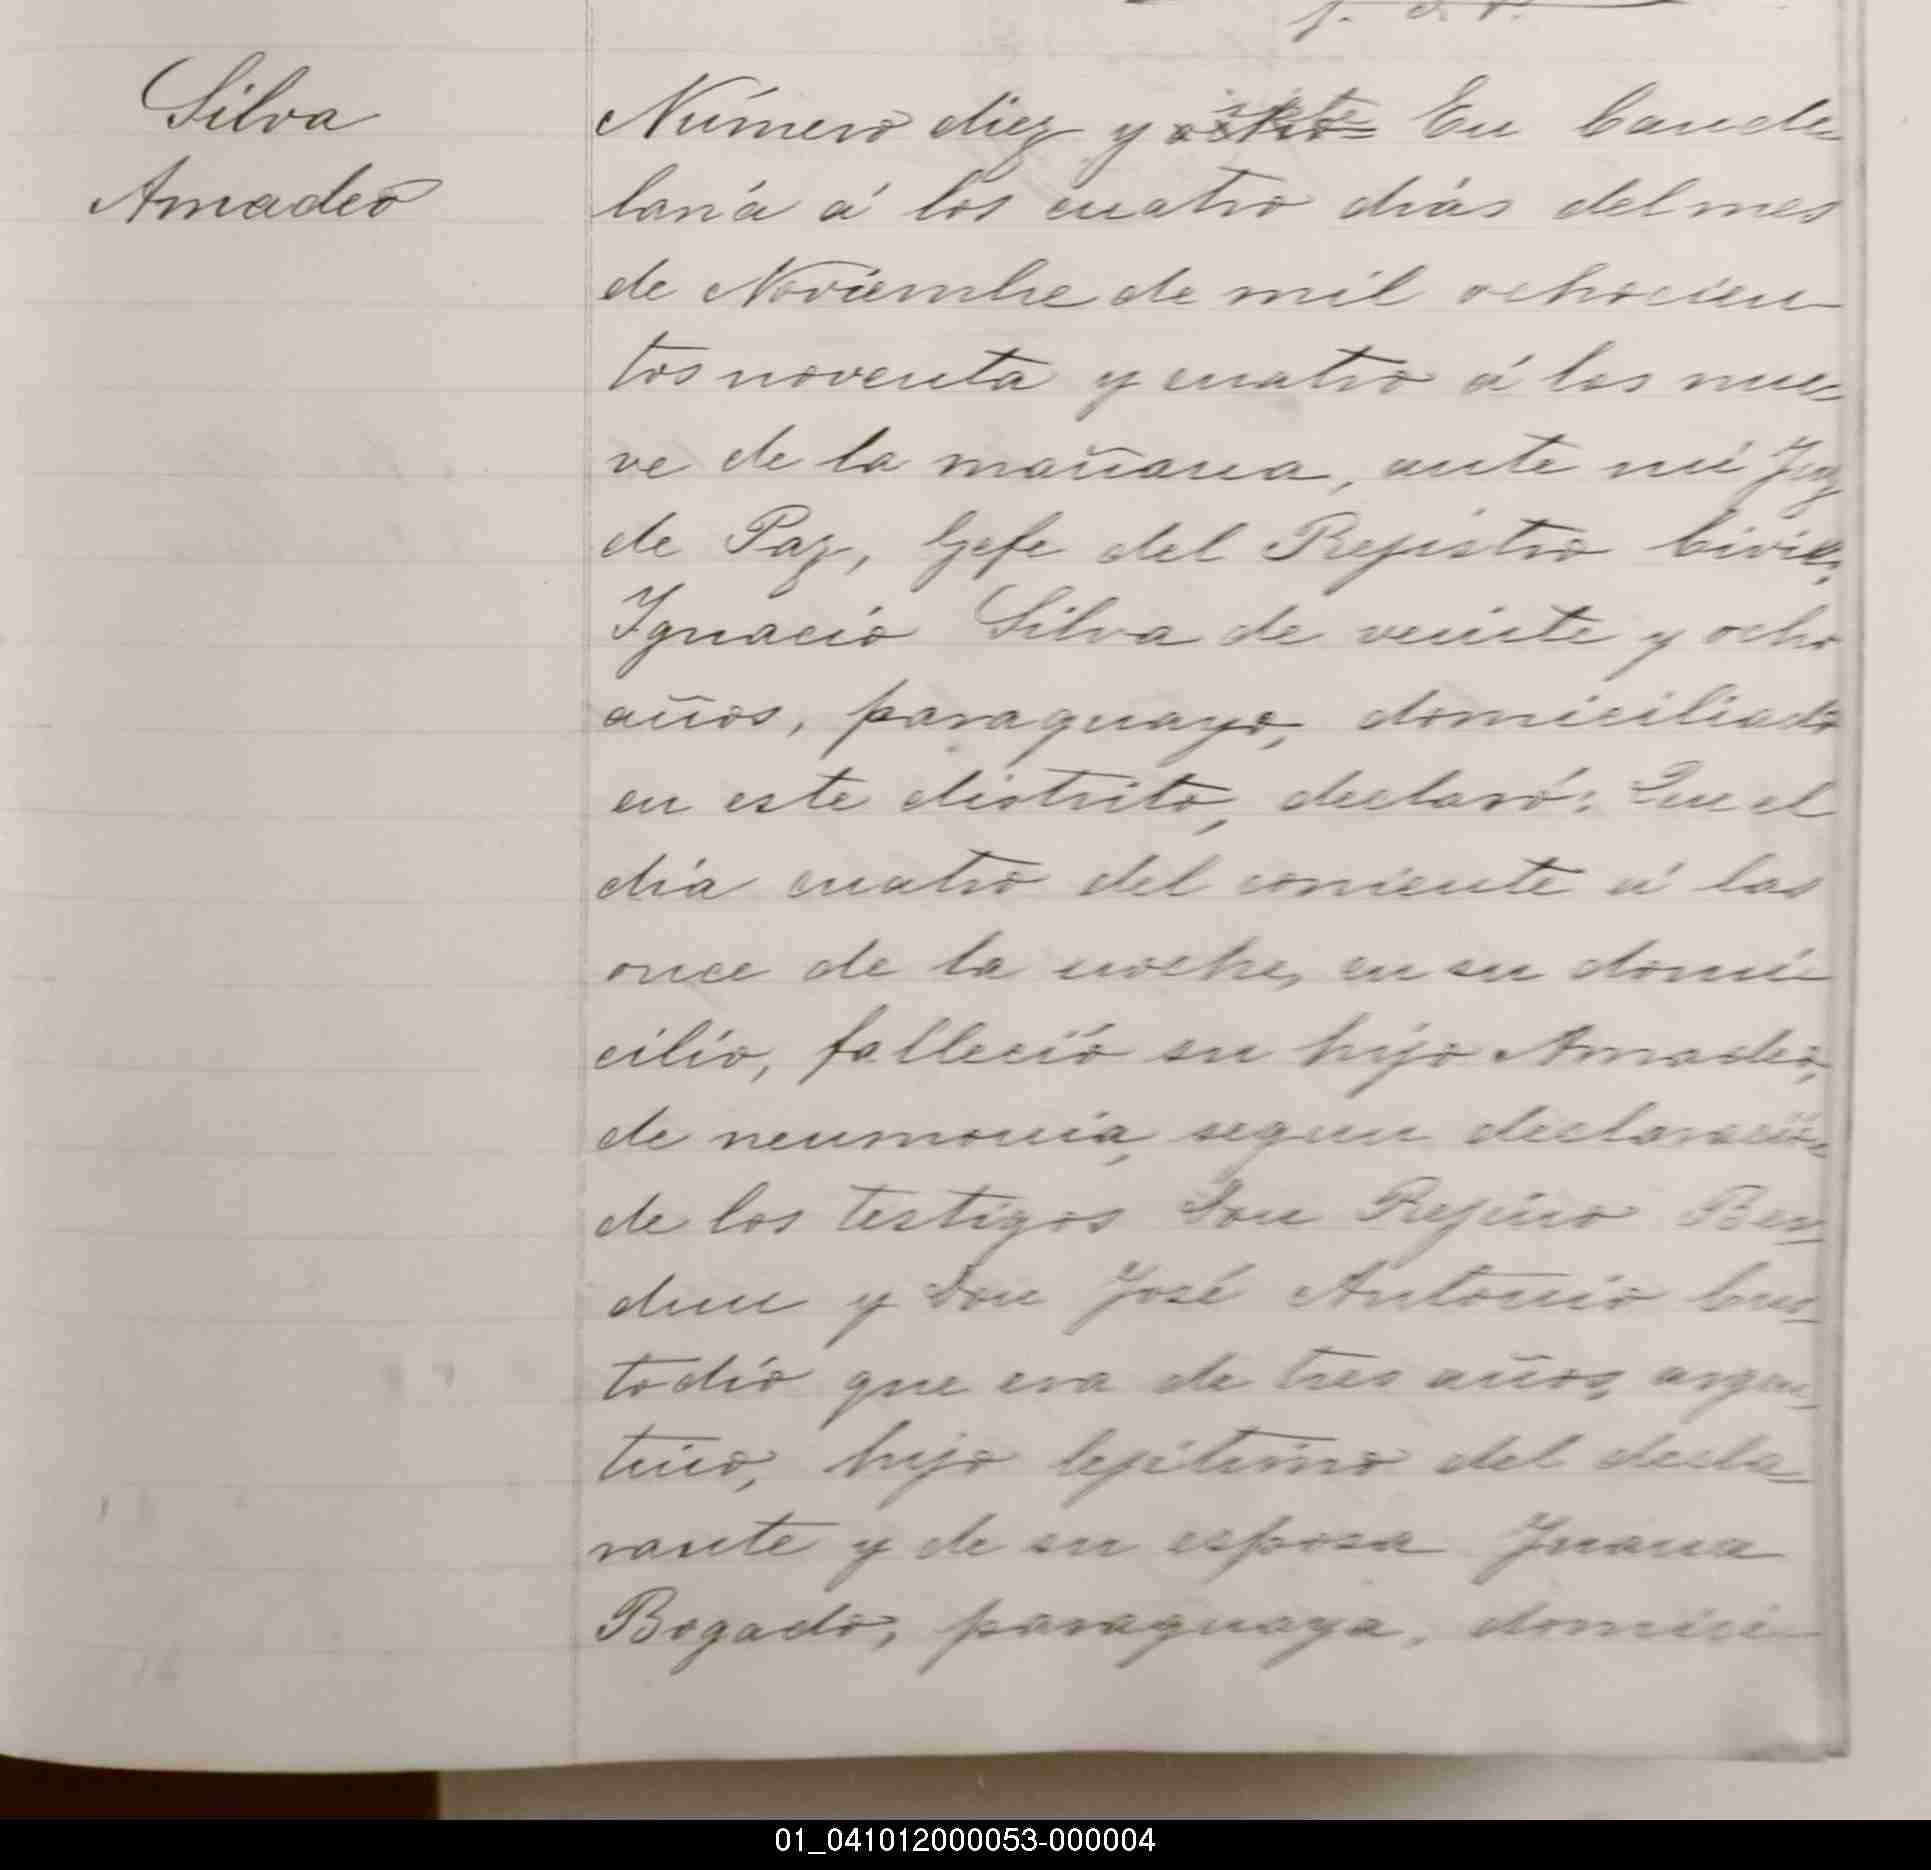 f. d. P.
Silva
Amadeo
Número diez y ocho siete En Cande
laria á los cuatro dias del mes
de Noviembre de mil ochocien
tos noventa y cuatro á las nue
ve de la mañana, ante mi Juez
de Paz, Gefe del Rejistro Civil,
Ignacio Silva de veinte y ocho
años, paraguayo, domiciliado
en este distrito, declaró: Que el
dia cuatro del corriente á las
once de la noche, en su domi
cilio, falleció su hijo Amadeo,
de neumonia, segun declaración
de los testigos Don Rejino Ben
dun y Don José Antonio Cus
todio que era de tres años, argen
tino, hijo lejitimo del decla
rante y de su esposa Juana
Bogado, paraguaya, domici
01_041012000053-000004